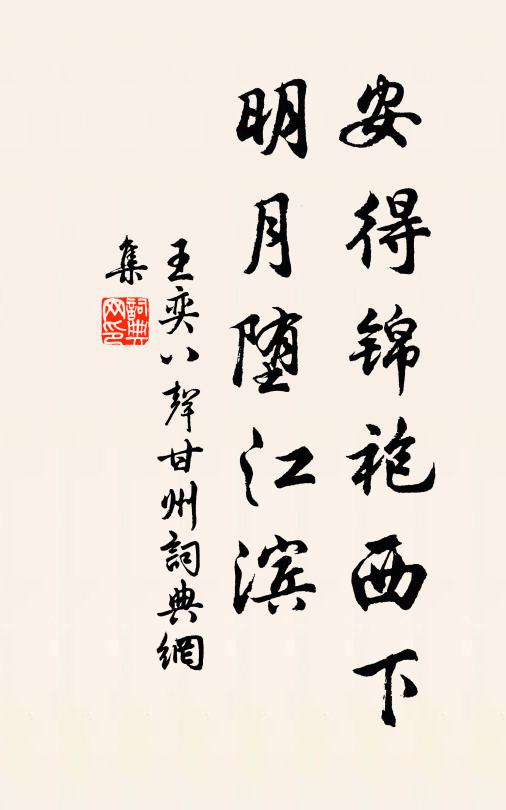 安得锦袍西下
明月堕江滨
王奕八聲甘州詞典網
集
詞典
网印